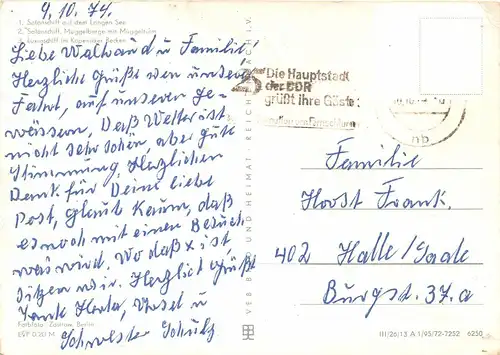 9.10.74.
1. Salonschiff auf dem Langen See
2. Salonschiff, Müggelberge mit Müggelturm
Liebe Waltraud u Familie!
Herzliche Grüße von unserer
Fahrt, auf unseren Ge-
wässern. Daß Wetter ist
nicht sehr schön, aber gute
Stimmung. Herzlichen
Dank für Deine liebe
Post, glaub kaum, daß
es noch mit einen Besuch
was wird. Wo daß x ist
sitzen wir. Herzlich grüßt
Tante Herta, Ursel u
Schwester Schulz
Farbfoto: Zastrow, Berlin
VEB BILD UND HEIMAT REICHENBACH i. V.
25
Die Hauptstadt
der DDR
grüßt ihre Gäste!
Familie
Horst Frank.
402 Halle/Saale
Burgstr. 37.a
III/26/13 A 1/95/72-7252 6250